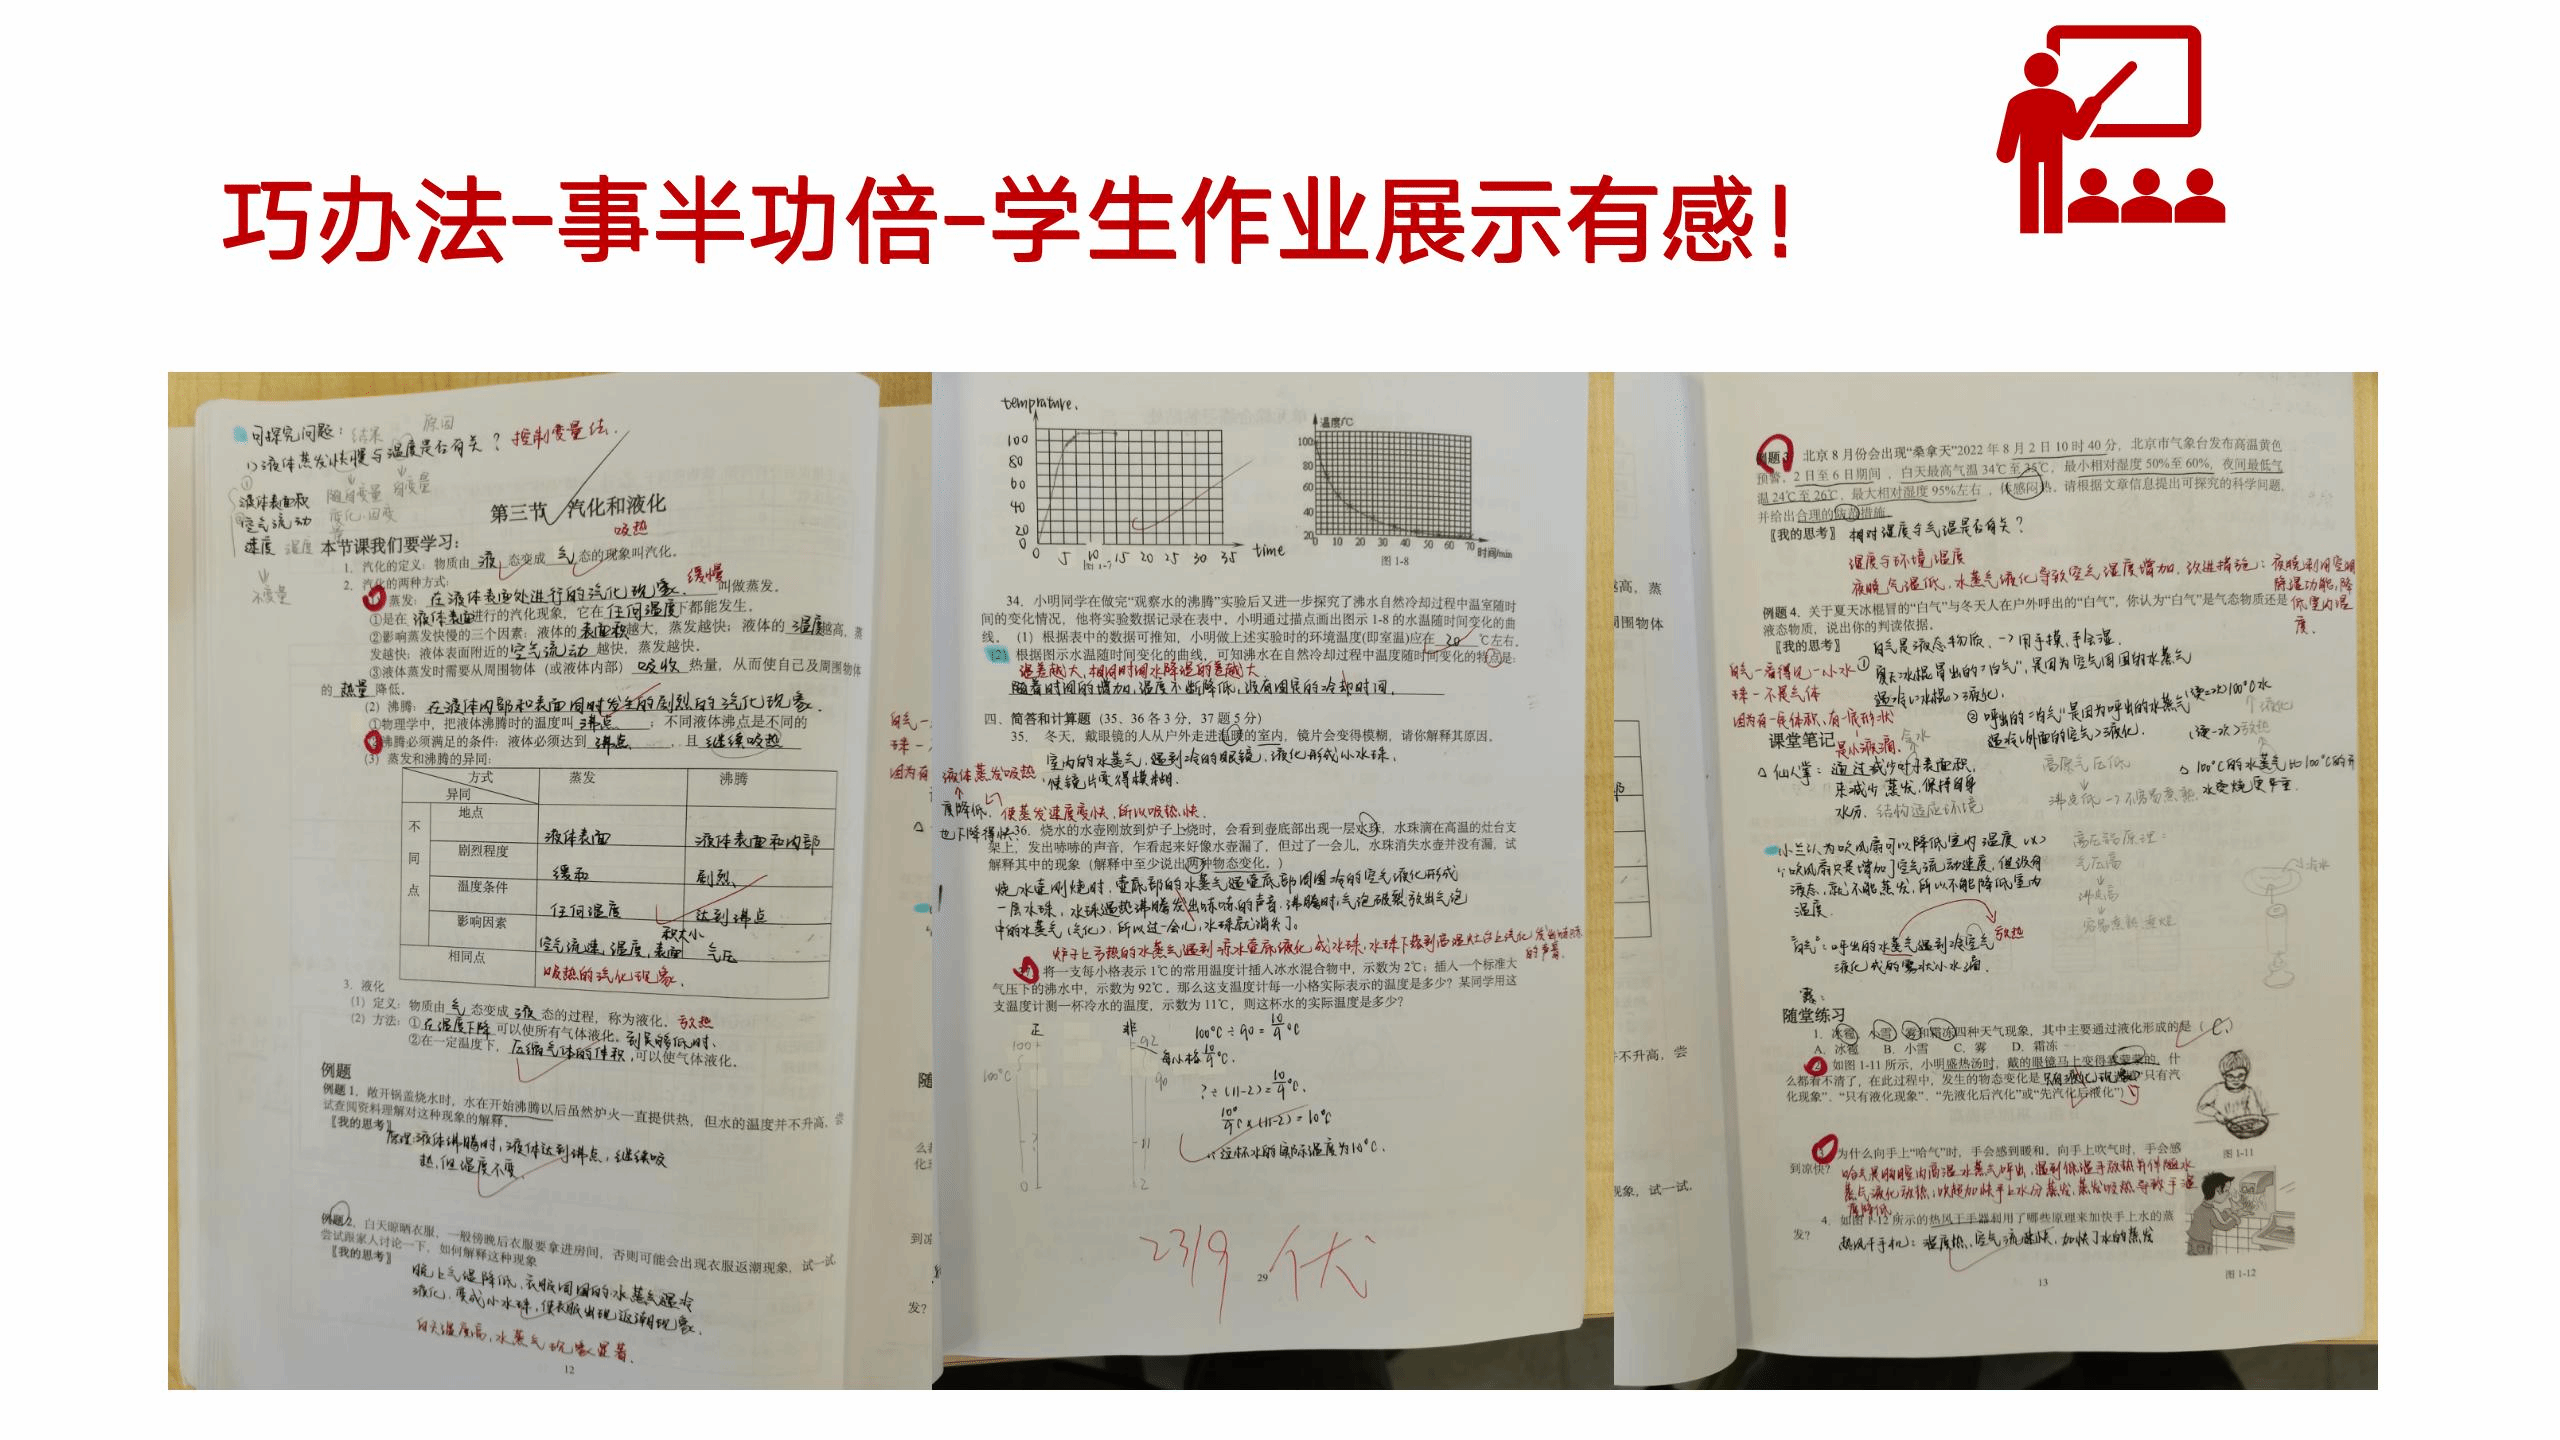 巧办法-事半功倍-学生作业展示有感！
可探究问题：结果 原因
1)液体蒸发快慢与温度是否有关？控制变量法.
液体表面积
空气流动
速度 温度
不变量
第三节 汽化和液化
吸热
本节课我们要学习：
1. 汽化的定义：物质由 液 态变成 气 态的现象叫汽化。
2. 汽化的两种方式：
缓慢
蒸发：在液体表面处进行的汽化现象. 叫做蒸发。
①是在 液体表面 进行的汽化现象，它在 任何温度 下都能发生。
②影响蒸发快慢的三个因素：液体的 表面积 越大，蒸发越快；液体的 温度 越高，蒸
发越快；液体表面附近的 空气流动 越快，蒸发越快。
③液体蒸发时需要从周围物体（或液体内部） 吸收 热量，从而使自己及周围物体
的 热量 降低。
（2）沸腾：在液体内部和表面同时发生的剧烈的汽化现象.
①物理学中，把液体沸腾时的温度叫 沸点 ；不同液体沸点是不同的
沸腾必须满足的条件：液体必须达到 沸点 ，且 继续吸热
（3）蒸发和沸腾的异同：
方式 蒸发 沸腾
异同
不同点
地点 液体表面 液体表面和内部
剧烈程度 缓和 剧烈
温度条件 任何温度 达到沸点
影响因素 空气流速，温度，表面积大小 气压
相同点 吸热的汽化现象.
3. 液化
（1）定义：物质由 气 态变成 液 态的过程，称为液化。放热
（2）方法：①在温度下降 可以使所有气体液化。到足够低时、
②在一定温度下，压缩气体的体积，可以使气体液化。
例题
例题 1，敞开锅盖烧水时，水在开始沸腾以后虽然炉火一直提供热，但水的温度并不升高，尝
试查阅资料理解对这种现象的解释。
〖我的思考〗
原理：液体沸腾时，液体达到沸点，继续吸
热，但温度不变.
例题2，白天晾晒衣服，一般傍晚后衣服要拿进房间，否则可能会出现衣服返潮现象，试一试
尝试跟家人讨论一下，如何解释这种现象
〖我的思考〗
晚上气温降低，衣服周围的水蒸气遇冷
液化，变成小水珠，使衣服出现返潮现象.
白天温度高，水蒸气现象显著.
12
temprature.
100
80
60
40
20
0
0 5 10 15 20 25 30 35 time
图1-7
温度/℃
100
80
60
40
20
0 10 20 30 40 50 60 70 时间/min
图 1-8
34. 小明同学在做完“观察水的沸腾”实验后又进一步探究了沸水自然冷却过程中温室随时
间的变化情况，他将实验数据记录在表中，小明通过描点画出图示 1-8 的水温随时间变化的曲
线。（1）根据表中的数据可推知，小明做上述实验时的环境温度(即室温)应在 20 ℃左右。
（2）根据图示水温随时间变化的曲线，可知沸水在自然冷却过程中温度随时间变化的特点是：
温差越大，相同时间水降温的差越大
随着时间的增加，温度不断降低，没有固定的冷却时间.
四、简答和计算题（35、36 各 3 分，37 题 5 分）
35. 冬天，戴眼镜的人从户外走进温暖的室内，镜片会变得模糊，请你解释其原因。
室内的水蒸气，遇到冷的眼镜，液化形成小水珠.
使镜片变得模糊.
液体蒸发吸热
使蒸发速度变快，所以吸热快.
36. 烧水的水壶刚放到炉子上烧时，会看到壶底部出现一层水珠，水珠滴在高温的灶台支
架上，发出哧哧的声音，乍看起来好像水壶漏了，但过了一会儿，水珠消失水壶并没有漏，试
解释其中的现象（解释中至少说出两种物态变化。）
烧水壶刚烧时，壶底部的水蒸气遇壶底部周围冷的空气液化形成
一层水珠，水珠遇热沸腾发出哧哧的声音，沸腾时，气泡破裂放出气泡
中的水蒸气(汽化)，所以过一会儿，水珠就消失了.
炉子上方热的水蒸气遇到凉水壶底液化成水珠，水珠下落到高温灶台上汽化
的声音.
将一支每小格表示 1℃的常用温度计插入冰水混合物中，示数为 2℃；插入一个标准大
气压下的沸水中，示数为 92℃。那么这支温度计每一小格实际表示的温度是多少？某同学用这
支温度计测一杯冷水的温度，示数为 11℃，则这杯水的实际温度是多少？
正 非 100℃÷90=10/9℃
每小格10/9℃.
?÷(11-2)=10/9℃.
10/9℃×(11-2)=10℃
∴这杯水的实际温度为10℃.
29
例题3 北京 8 月份会出现“桑拿天”2022 年 8 月 2 日 10 时 40 分，北京市气象台发布高温黄色
预警，2 日至 6 日期间，白天最高气温 34℃至35℃，最小相对湿度 50%至 60%，夜间最低气
温 24℃至 26℃，最大相对湿度 95%左右，体感闷热。请根据文章信息提出可探究的科学问题，
并给出合理的防范措施。
〖我的思考〗相对湿度与气温是否有关？
湿度与环境温度
夜晚气温低，水蒸气液化导致空气湿度增加. 改进措施：夜晚利用空调
除湿功能，降
低室内湿
度.
例题 4. 关于夏天冰棍冒的“白气”与冬天人在户外呼出的“白气”，你认为“白气”是气态物质还是
液态物质，说出你的判读依据。
〖我的思考〗 白气是液态物质. →用手摸，手会湿.
白气一看得见一小水
珠一不是气体
因为有一定体积，有一定形状
是小液滴.
①夏天冰棍冒出的“白气”，是因为空气周围的水蒸气
遇冷(冰棍)液化.
②呼出的“白气”是因为呼出的水蒸气
遇冷(外面的空气)液化.
课堂笔记
△仙人掌：通过减少叶子表面积，
来减少蒸发，保持自身
水分. 结构适应环境
高原气压低
沸点低→不容易煮熟.
△100℃的水蒸气比100℃的开
水烫烧更严重.
小兰认为吹风扇可以降低室内温度 (×)
吹风扇只是增加了空气流动速度，但没有
液态，就不能蒸发，所以不能降低室内
温度.
高压锅原理：
气压高
沸点高
容易煮熟煮烂
“白气”：呼出的水蒸气遇到冷空气放热
液化成的雾状小水滴.
露：
随堂练习
1. 冰雹、小雪、雾和霜冻四种天气现象，其中主要通过液化形成的是（C）
A. 冰雹 B. 小雪 C. 雾 D. 霜冻
2. 如图 1-11 所示，小明盛热汤时，戴的眼镜马上变得雾蒙蒙的，什
么都看不清了，在此过程中，发生的物态变化是 只有液化现象 “只有汽
化现象”、“只有液化现象”、“先液化后汽化”或“先汽化后液化”）
图 1-11
为什么向手上“哈气”时，手会感到暖和。向手上吹气时，手会感
到凉快？
哈气是胸腔内高温水蒸气呼出，遇到低温手放热并伴随水
蒸气液化放热；吹气加快手上水分蒸发，蒸发吸热导致手温
度降低
4. 如图 1-12 所示的热风干手器利用了哪些原理来加快手上水的蒸
发？
热风干手机：温度热，空气流速快，加快了水的蒸发
13
图 1-12